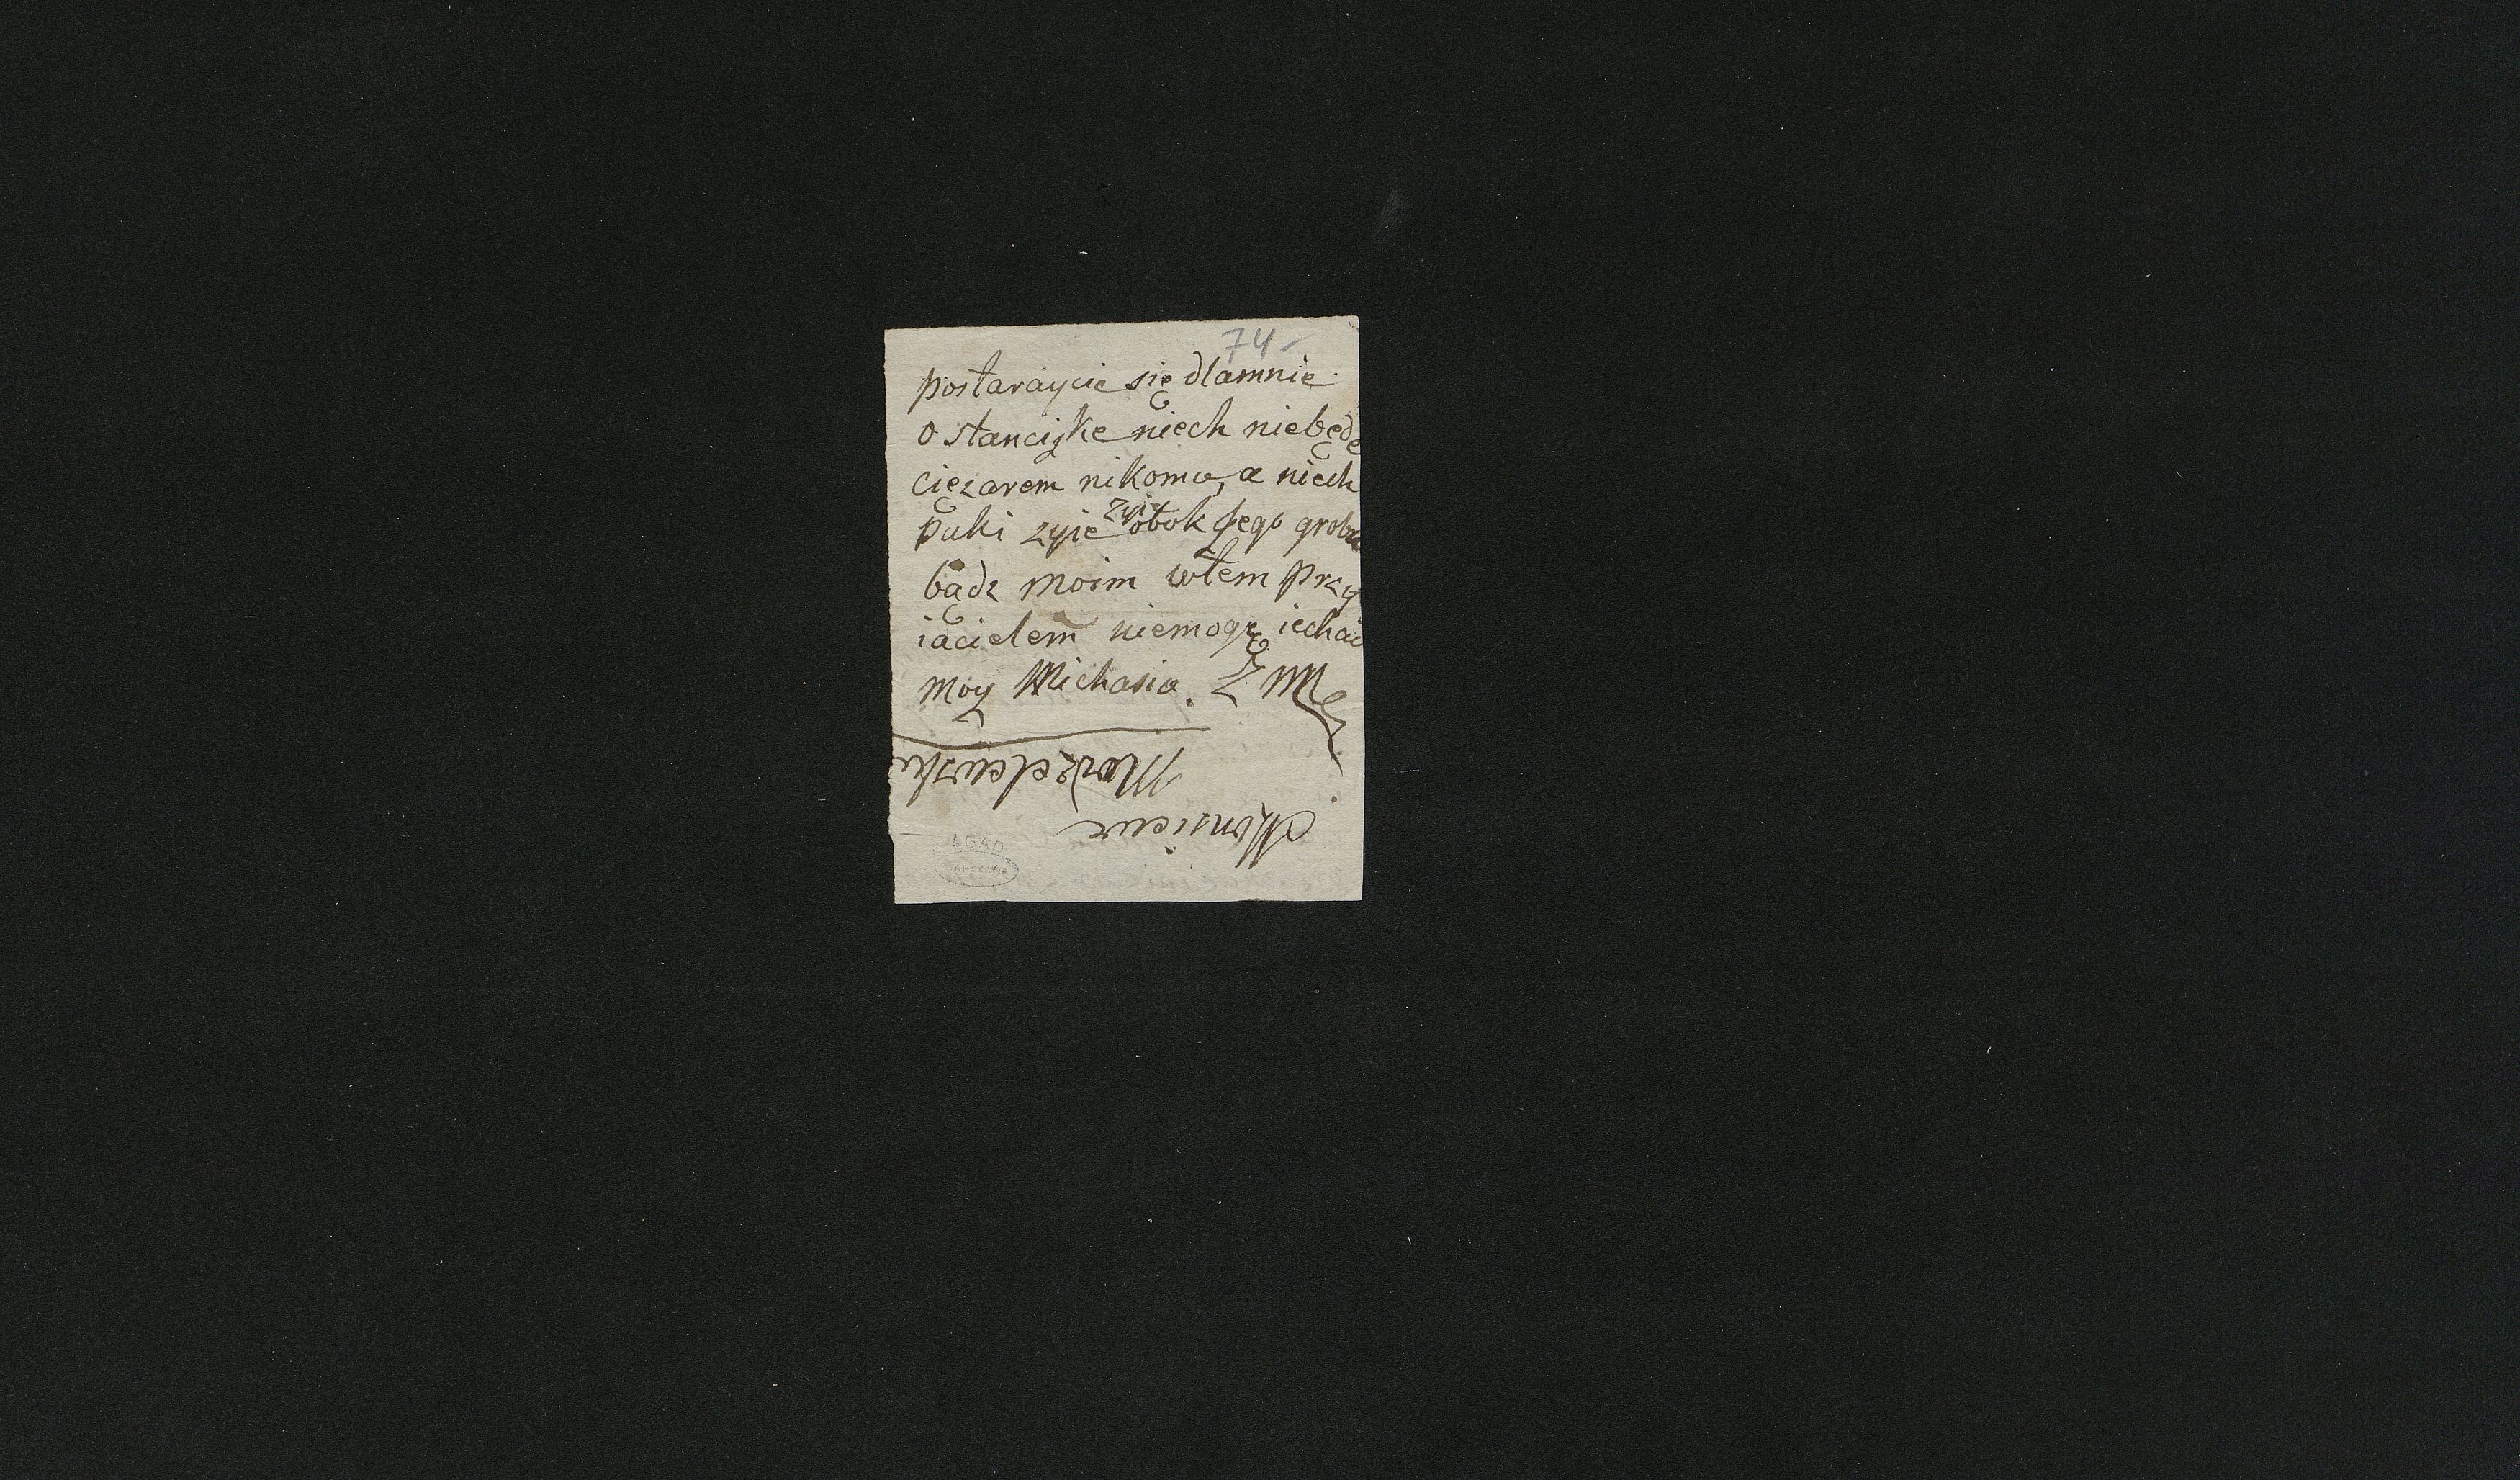 74-
postaraycie się dlamnie
o stancyike niech niebędę
cięzarem nikomu, a niech
puki zyie zyię obok Jego grobu
bądz moim wtem przy
iacielem niemogę iechać
moy Michasiu. Z M
Monsieur
Modzelewski
AGAD
WARSZAWA